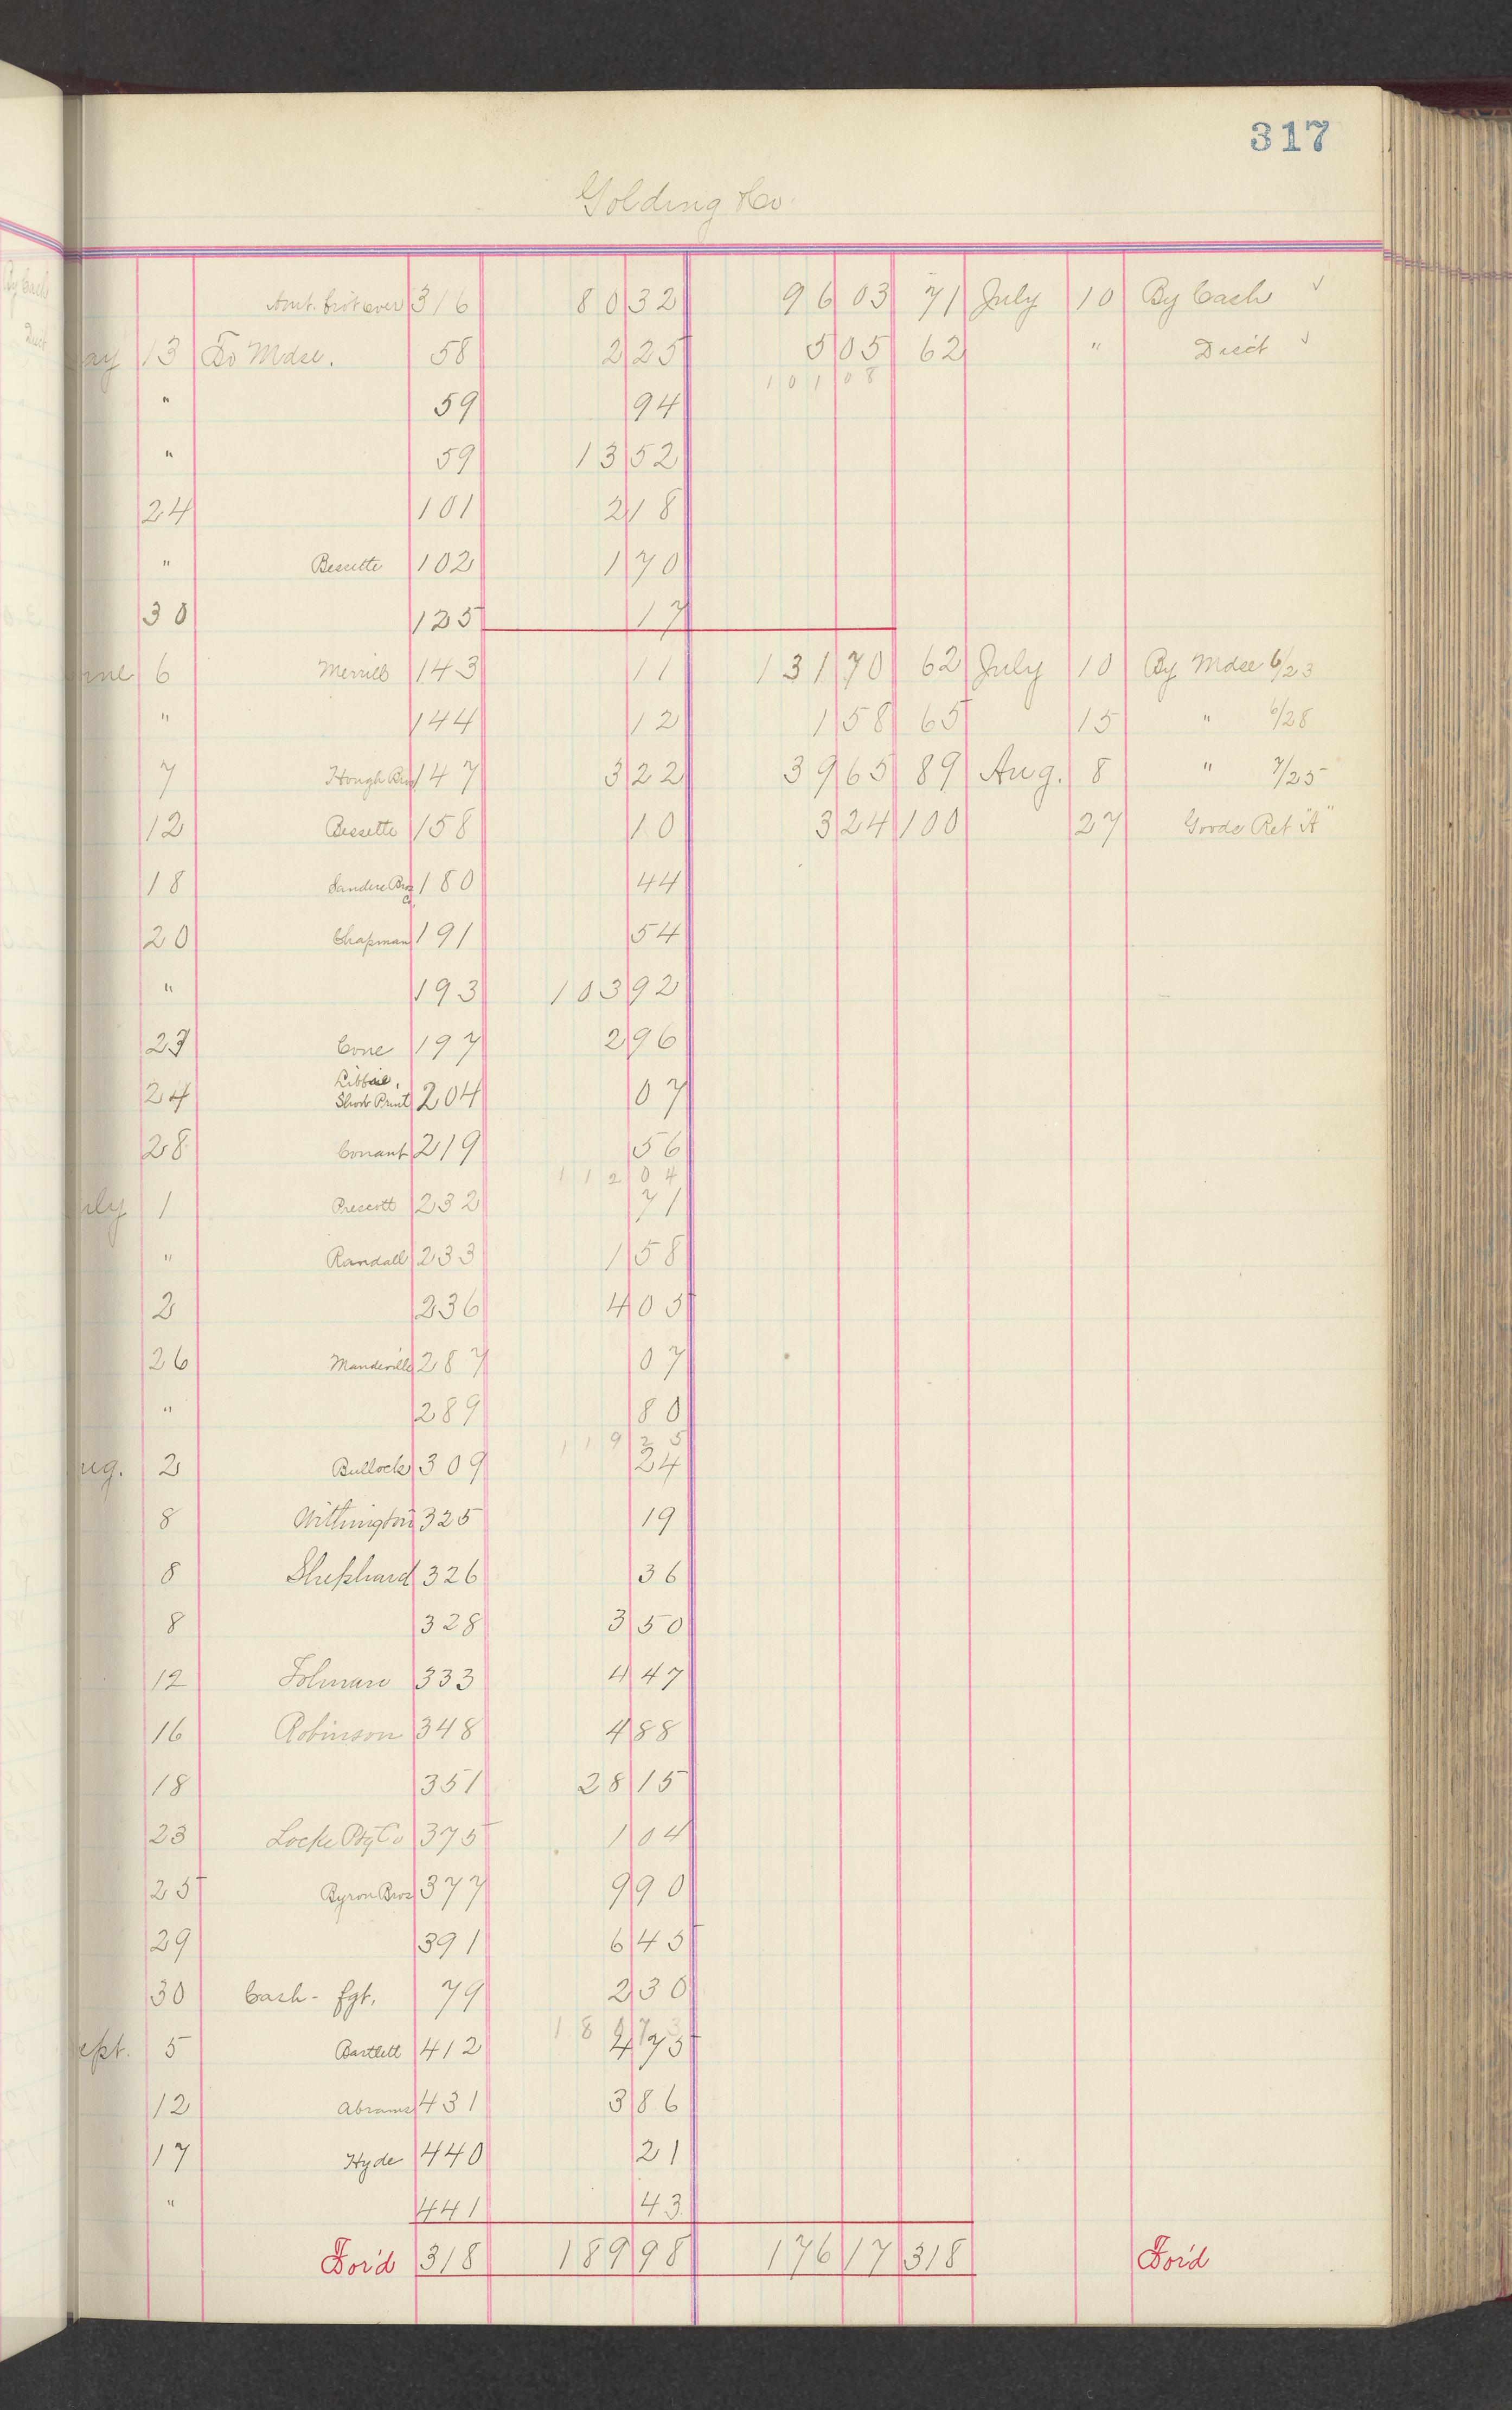 317
Golding & Co.
Amt. bro't over 316 80 32 96 03 71 July 10 By Cash ✓
ay 13 To Mdse. 58 2 25 5 05 62 " Disc't ✓
101 08
" 59 94
" 59 13 52
24 101 2 18
" Bessette 102 1 70
30 125 17
une 6 Merrill 143 11 131 70 62 July 10 By Mdse 6/23
" 144 12 1 58 65 15 " 6/28
7 Hough Bros 147 3 22 39 65 89 Aug. 8 " 7/25
12 Bessette 158 10 3 24 100 27 Goods Ret "A"
18 Sanders Bros Co. 180 44
20 Chapman 191 54
" 193 103 92
23 Cone 197 2 96
24 Libbie Show Print 204 07
28 Conant 219 56
112 04
uly 1 Prescott 232 71
" Randall 233 1 58
2 236 4 05
26 Mandeville 287 07
" 289 80
119 25
ug. 2 Bullock 309 24
8 Withington 325 19
8 Shephard 326 36
8 328 3 50
12 Tolman 333 4 47
16 Robinson 348 4 88
18 351 28 15
23 Locke Ptg Co 375 1 04
25 Byron Bros 377 9 90
29 391 6 45
30 Cash - fgt. 79 2 30
180 73
ept. 5 Bartlett 412 4 75
12 Abrams 431 3 86
17 Hyde 440 21
" 441 43
For'd 318 189 98 176 17 318 For'd